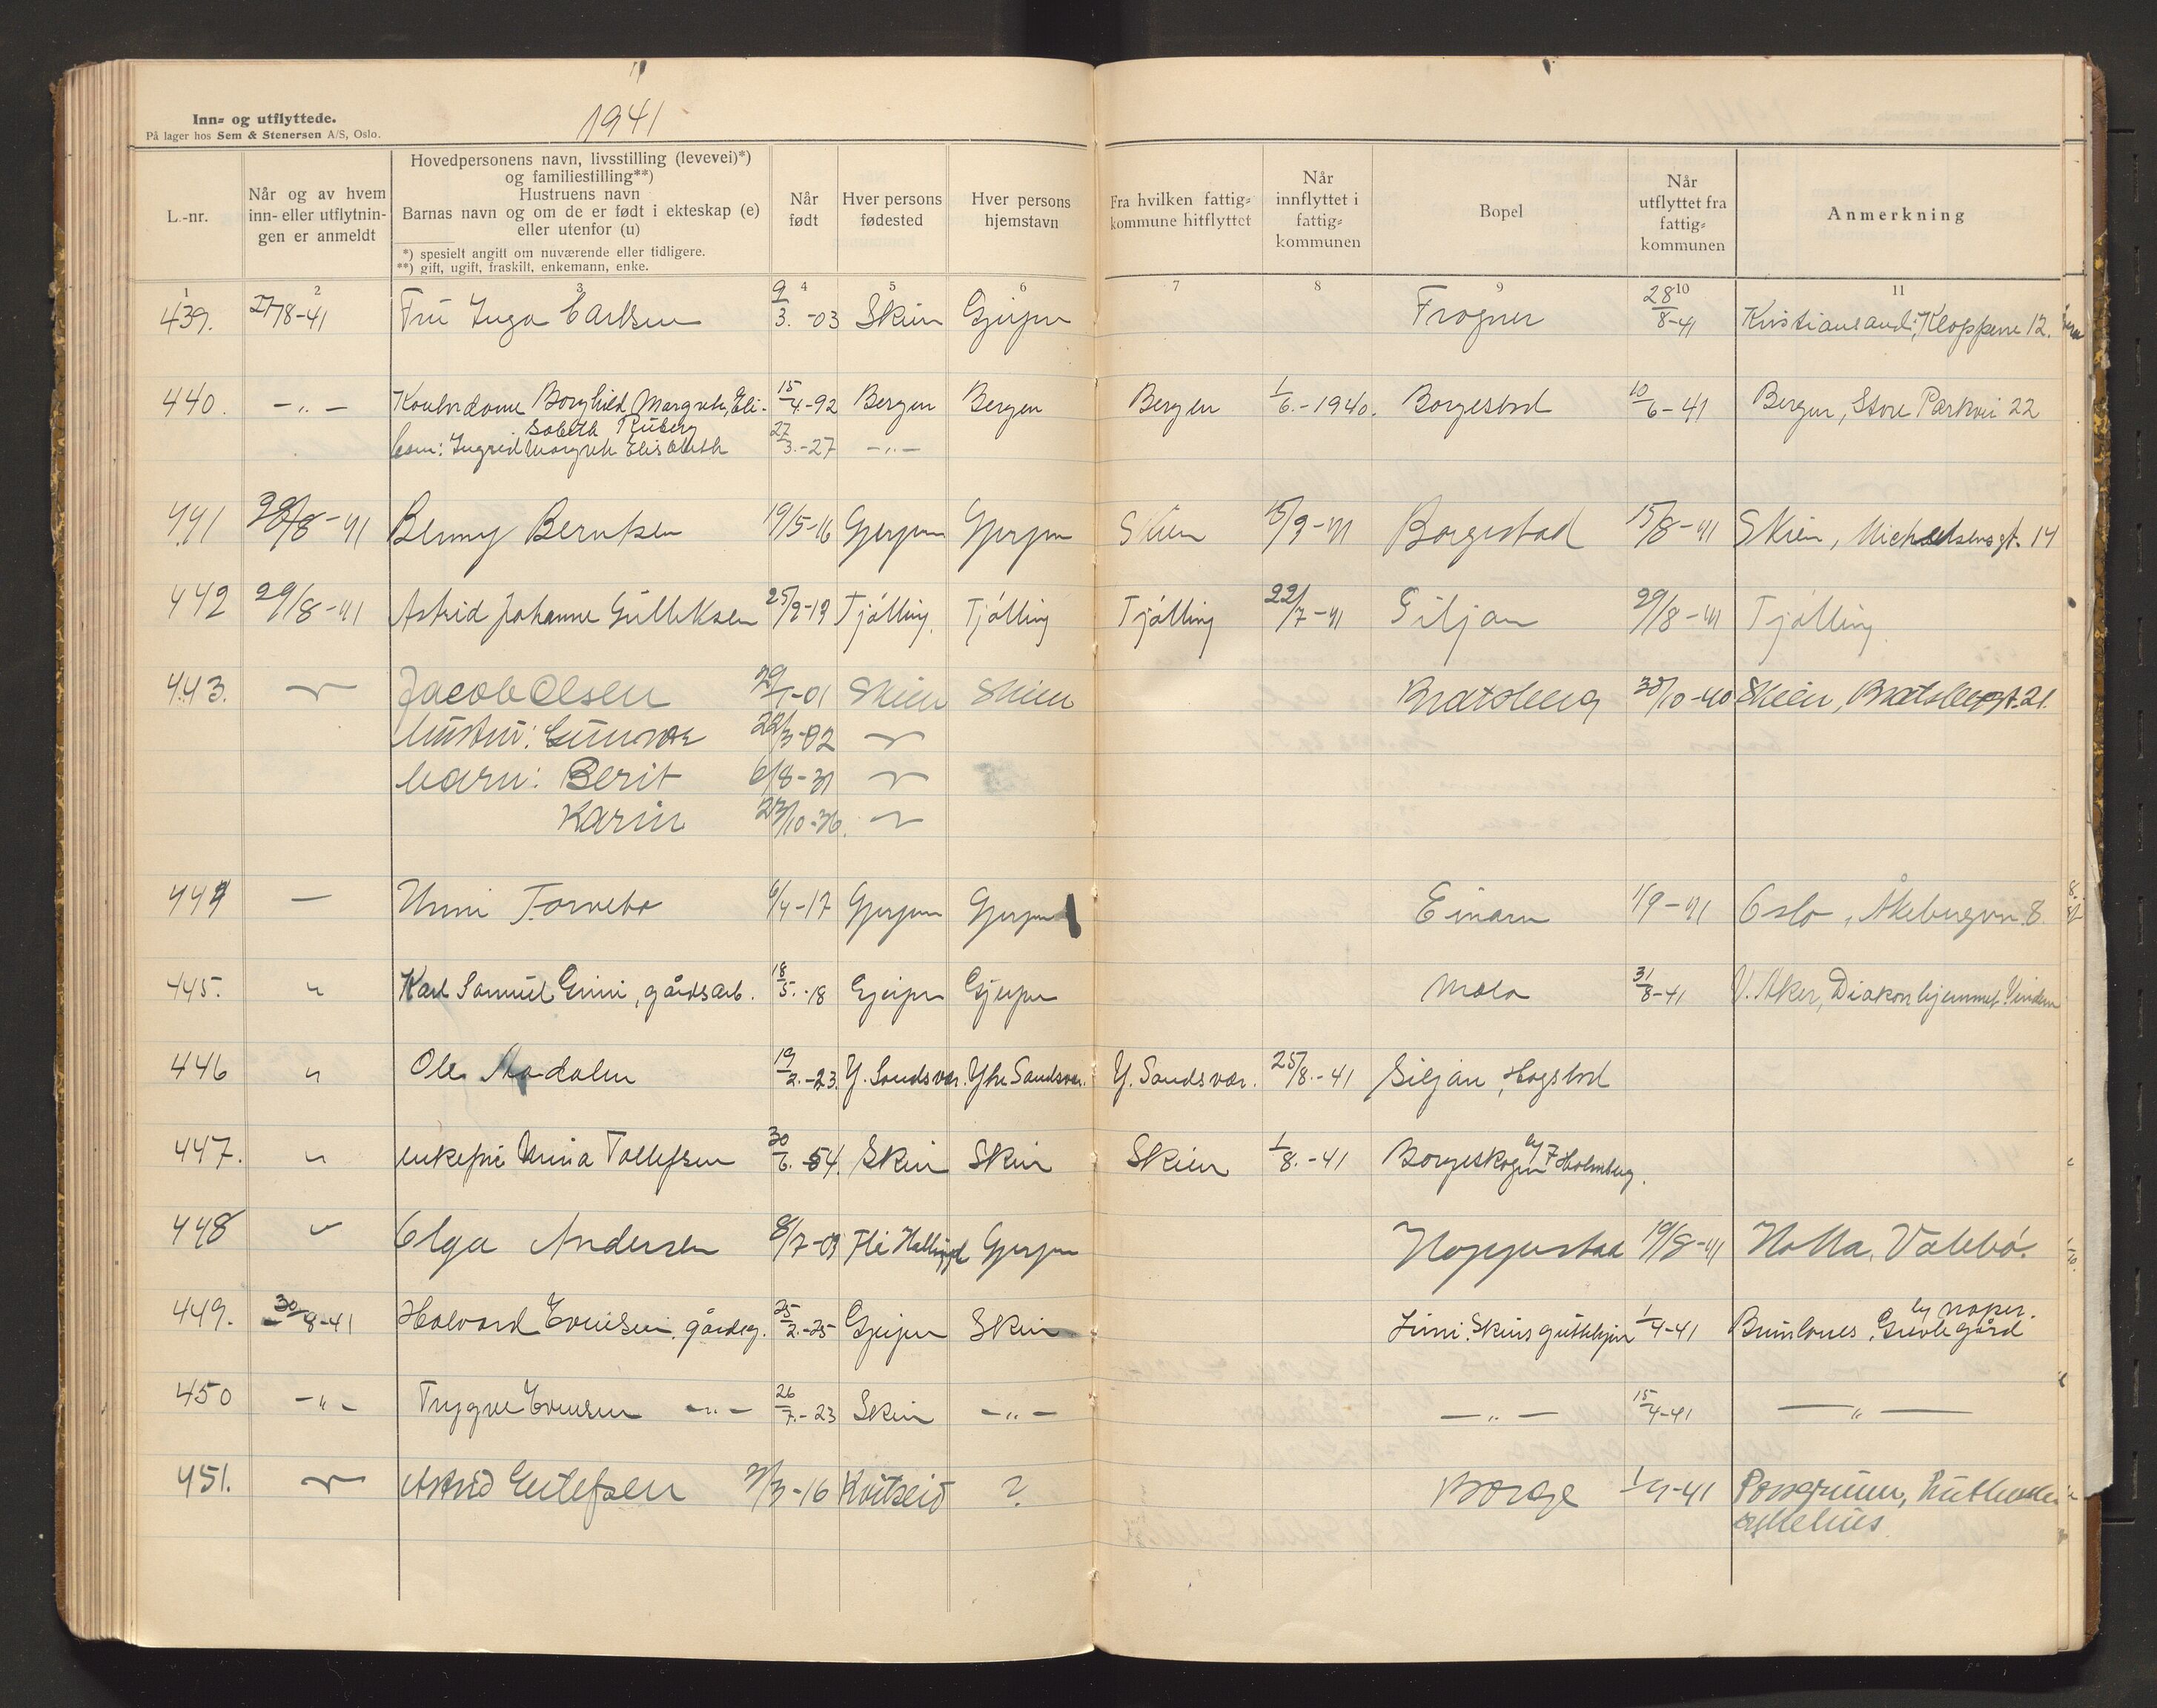 Inn- og utflyttede.
På lager hos Sem & Stenersen A/S, Oslo.
1941
L.-nr.
Når og av hvem
inn- eller utflytnin-
gen er anmeldt
Hovedpersonens navn, livsstilling (levevei)*)
og familiestilling**)
Hustruens navn
Barnas navn og om de er født i ekteskap (e)
eller utenfor (u)
*) spesielt angitt om nuværende eller tidligere.
**) gift, ugift, fraskilt, enkemann, enke.
Når
født
Hver persons
fødested
Hver persons
hjemstavn
Fra hvilken fattig-
kommune hitflyttet
Når
innflyttet i
fattig-
kommunen
Bopel
Når
utflyttet fra
fattig-
kommunen
Anmerkning
1 2 3 4 5 6 7 8 9 10 11
439. 27/8-41 Fru Inga Carlsen 9/3.-03 Skien Gjerpen Frogner 28/8-41 Kristiansand, Kloppene 12.
440. -"- Borghild Margrete Eli- 15/4-92 Bergen Bergen Bergen 1/6.-1940. Borgestad 10/6-41 Bergen, Store Parkvei 22
sabeth
barn: Ingrid Margrete Elisabeth 27/3.-27 -"-
441 28/8-41 Benny Berntsen 19/5-16 Gjerpen Gjerpen Skien 15/9-41 Borgestad 15/8-41 Skien, Michaelsensgt. 14
442 29/8-41 Astrid Johanne Gulliksen 25/9-19 Tjølling Tjølling Tjølling 22/7-41 Siljan 29/8-41 Tjølling
443. -"- Jacob Olsen 29/1-01 Skien Skien Bratsberg 30/10-40 Skien, Bratsbergt. 21.
hustru: Gunvor 22/3-02 -"-
barn: Berit 6/8-31 -"-
Karin 23/10-36. -"-
444 - Unni Tornebo 6/4-17 Gjerpen Gjerpen Einarn 1/9-41 Oslo, Åkebergvn. 8
445. " Karl Samuel Grini, gårdsarb. 18/5.-18 Gjerpen Gjerpen Mæla 31/8-41 V. Aker, Diakonhjemmet. Vindern
446 " Ole 19/2.-23. Y. Sandsvær. Ytre Sandsvær. Y. Sandsvær. 25/8.-41 Siljan, Hogstad
447. " enkefru Tollefsen 30/6.-54. Skien Skien Skien 1/8.-41 Borgeskogen by 7 Holmberg.
448 " Olga Andersen 8/7-09 Flå Hallingd. Gjerpen Hoppestad 19/8-41 Holla, Valebø.
449. 30/8-41 Halvord Evensen, gårdsg. 25/2.-25 Gjerpen Skien Limi. Skiens guttehjem 1/4-41 Brunlanes,
gård
450 -"- Trygve Evensen -"- 26/7.-23 Skien -"- -"- 15/4-41 -"-
451. -"- Astrid Eilefsen Kviteseid ? Borge Porsgrunn,
sykehus.